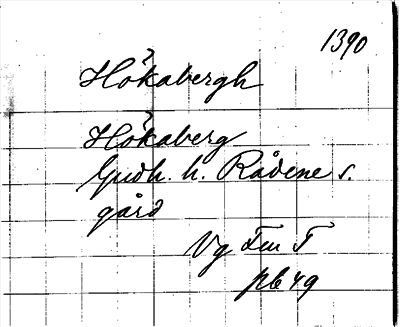 1390
Hökabergh
Hökaberg
Gudh. h. Rådene s.
gård
Vg Fm T
pb 49